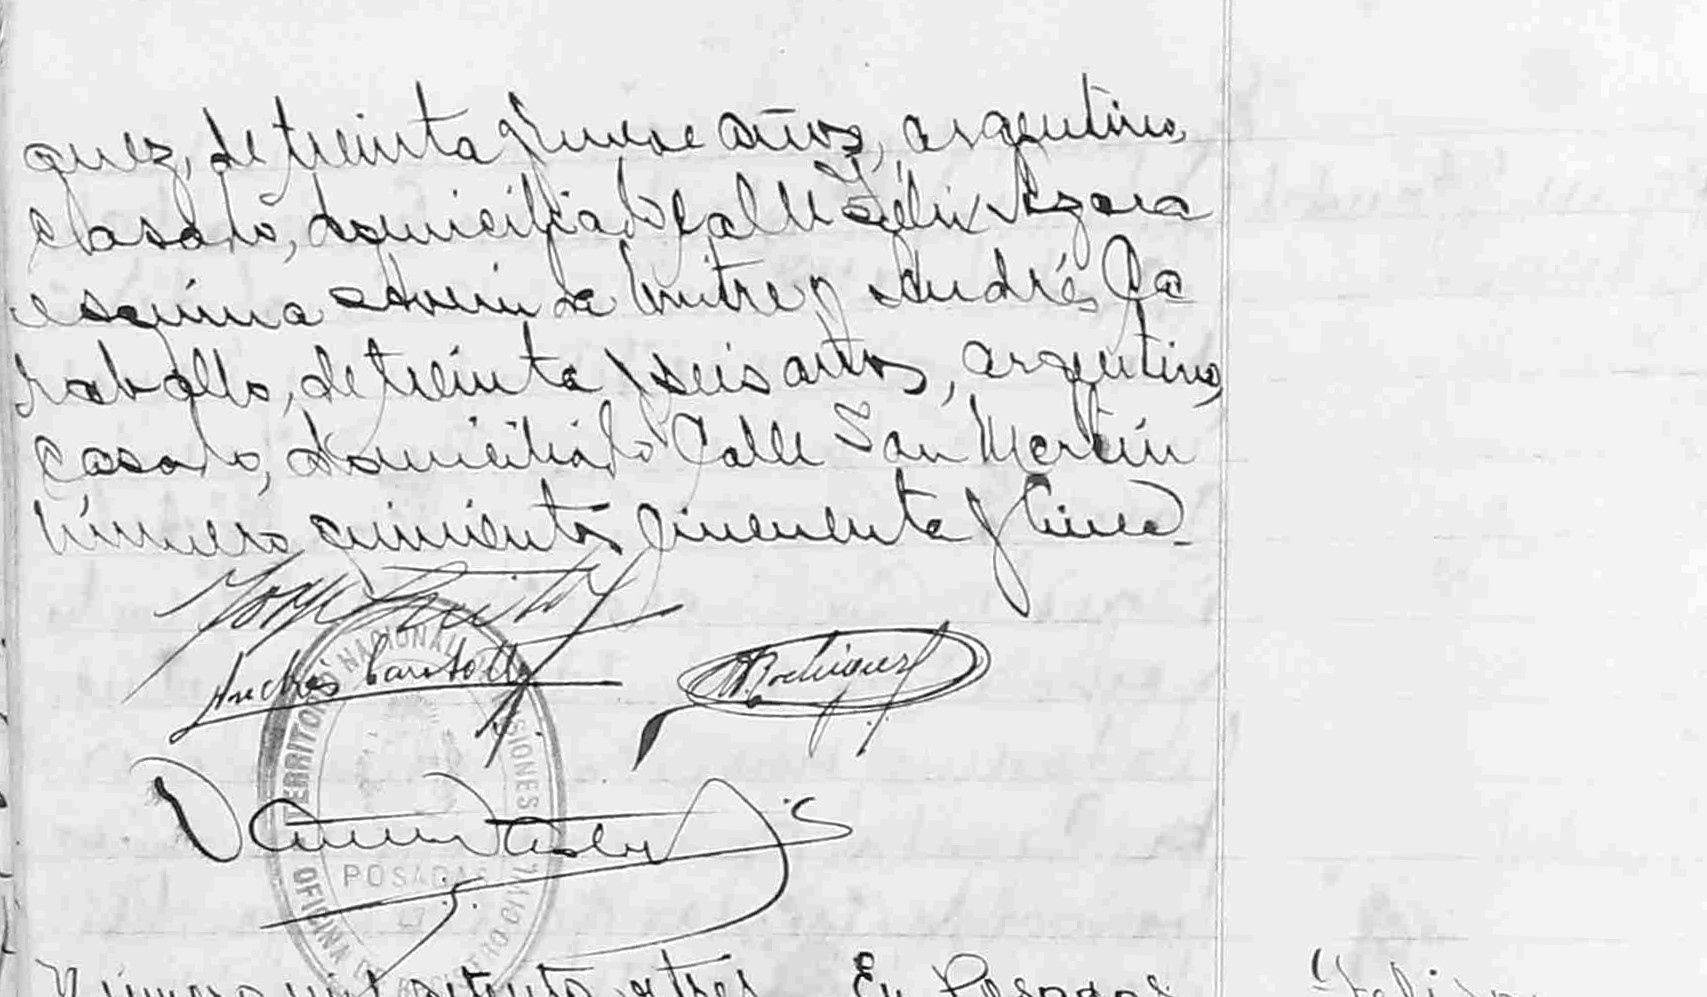 quez, de treinta y nueve años, argentino,
casado, domiciliado calle Félix Azara
esquina Avenida Mitre y Andrés Ca
raballo, de treinta y seis años, argentino,
casado, domiciliado Calle San Martín
número quinientos cincuenta y cinco.-
Andrés Caraballo
Rodriguez
TERRITORIO NACIONAL MISIONES
POSADAS
OFICINA
Número mil setenta y tres En Posadas